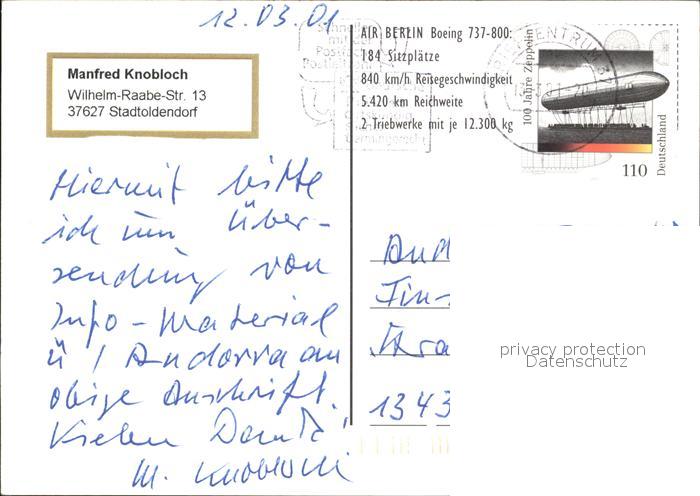 12.03.01
Manfred Knobloch
Wilhelm-Raabe-Str. 13
37627 Stadtoldendorf
Hiermit bitte
ich um Über-
sendung von
Info-Material
ü / Andorra an
obige Anschrift.
Vielen Dank!
M. Knobloch
AIR BERLIN Boeing 737-800:
184 Sitzplätze
840 km/h Reisegeschwindigkeit
5.420 km Reichweite
2 Triebwerke mit je 12.300 kg
100 Jahre Zeppelin
Deutschland
110
And
1343
privacy protection
Datenschutz